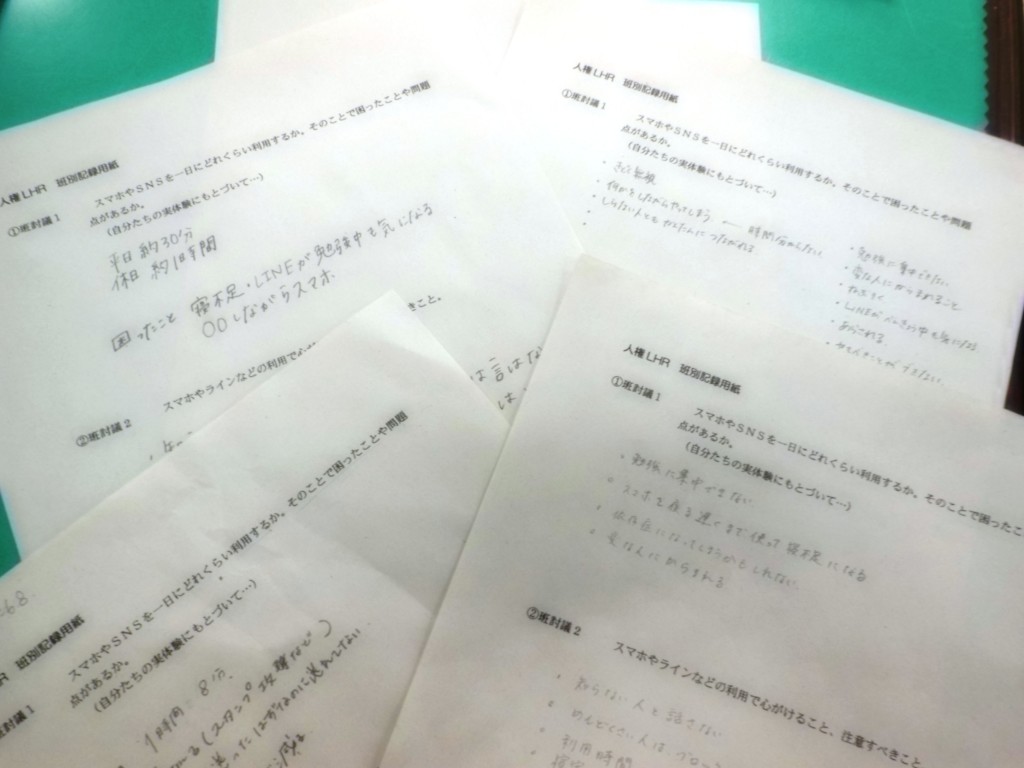 人権LHR 班別記録用紙
①班討議1
スマホやSNSを一日にどれくらい利用するか。そのことで困ったことや問題
点があるか。
(自分たちの実体験にもとづいて…)
平日 約30分
休日 約1時間
困ったこと 寝不足・LINEが勉強中も気になる
〇〇しながらスマホ
②班討議2
スマホやラインなどの利用で心
きこと。
は言はな
人権LHR 班別記録用紙
①班討議1
スマホやSNSを一日にどれくらい利用するか。そのことで困ったことや問題
点があるか。
(自分たちの実体験にもとづいて…)
・何かをしながらやってしまう
・しらない人ともかんたんにつながれる
・勉強に集中できない
・変な人にからまれること
68.
HR 班別記録用紙
班討議1
スマホやSNSを一日にどれくらい利用するか。そのことで困ったことや問題
点があるか。
(自分たちの実体験にもとづいて…)
1時間 8分.
(スタンプ攻撃など)
送ったはずなのに送れてない
人権LHR 班別記録用紙
①班討議1
スマホやSNSを一日にどれくらい利用するか。そのことで困ったこ
点があるか。
(自分たちの実体験にもとづいて…)
・勉強に集中できない
・スマホを夜遅くまで使って寝不足になる
・依存症になってしまうかもしれない
・変な人にからまれる
②班討議2
スマホやラインなどの利用で心がけること、注意すべきこと
・知らない人と話さない
・めんどくさい人は、ブロック
・利用時間